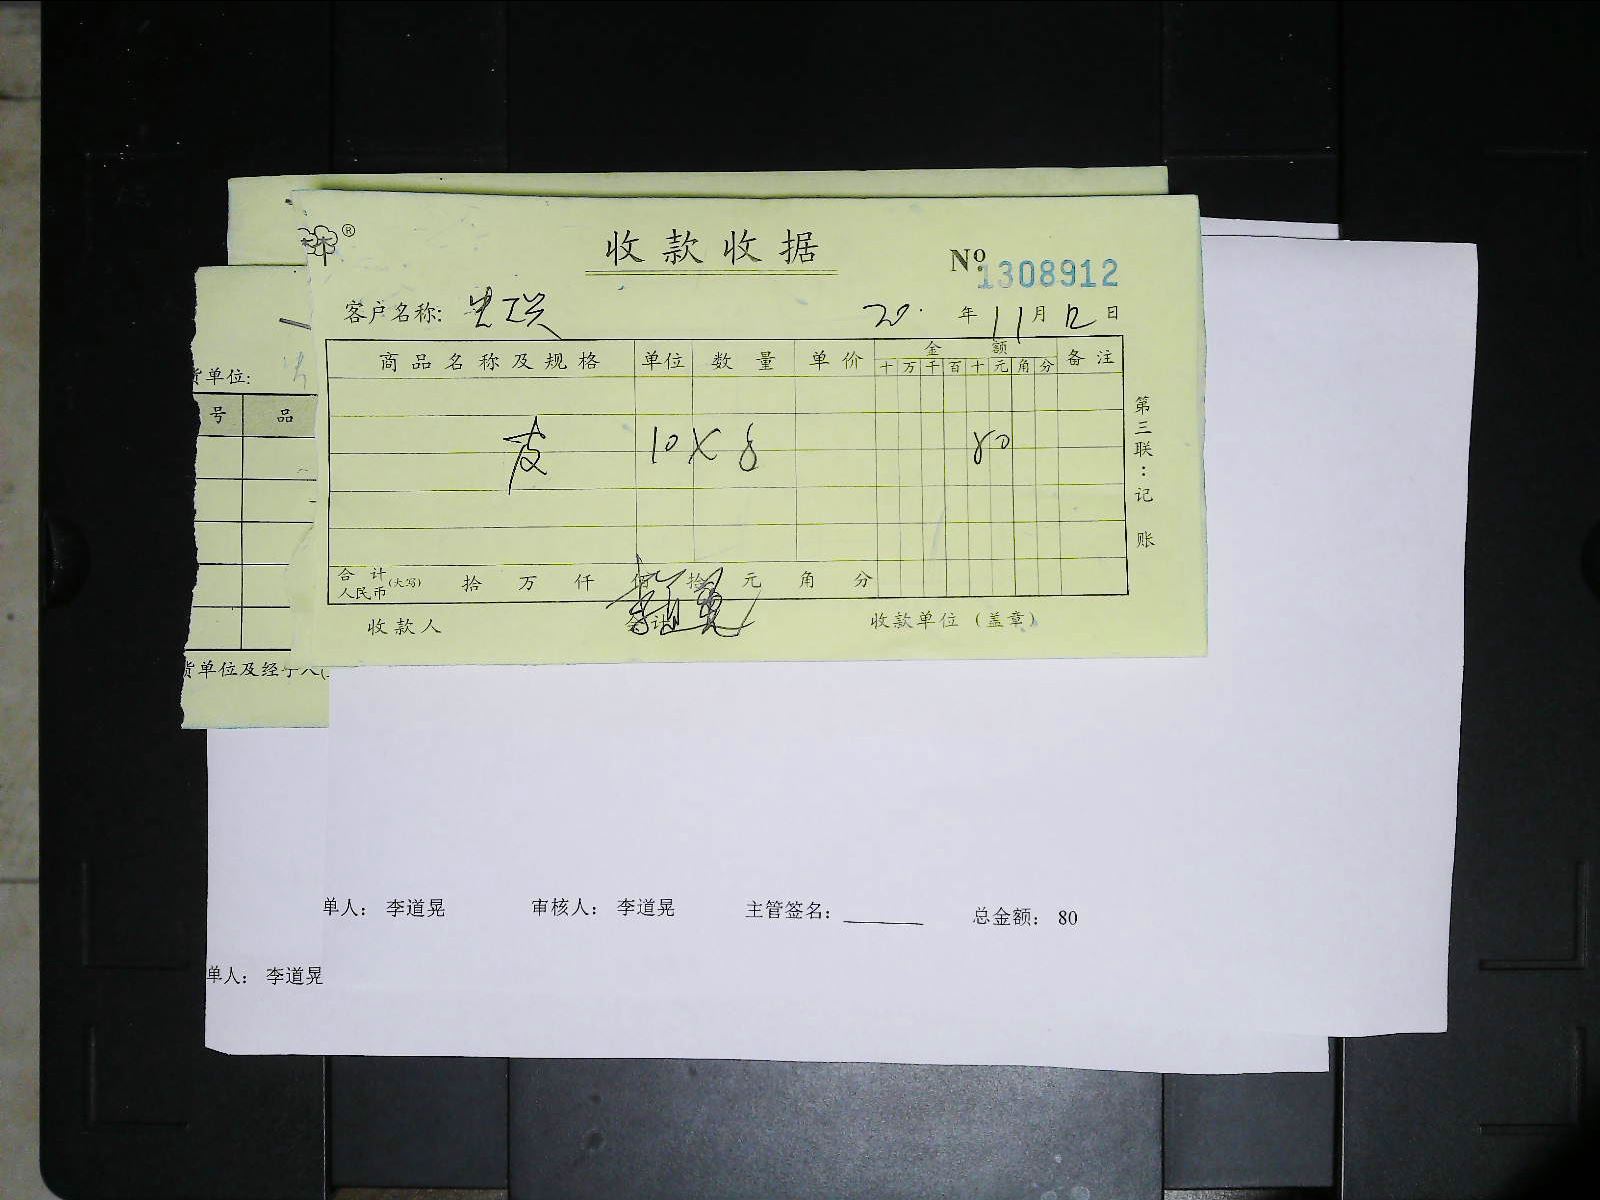 ®
收款收据
Nº 1308912
客户名称:
20 年 11 月 12 日
货单位:
商品名称及规格 单位 数量 单价 金额 备注
十 万 千 百 十 元 角 分
号 品
第三联:记账
10 X 8 80
合计 人民币 (大写) 拾 万 仟 佰 拾 元 角 分
李道晃
收款人 会计 收款单位(盖章)
货单位及经手人(
单人: 李道晃 审核人: 李道晃 主管签名: 总金额: 80
单人: 李道晃